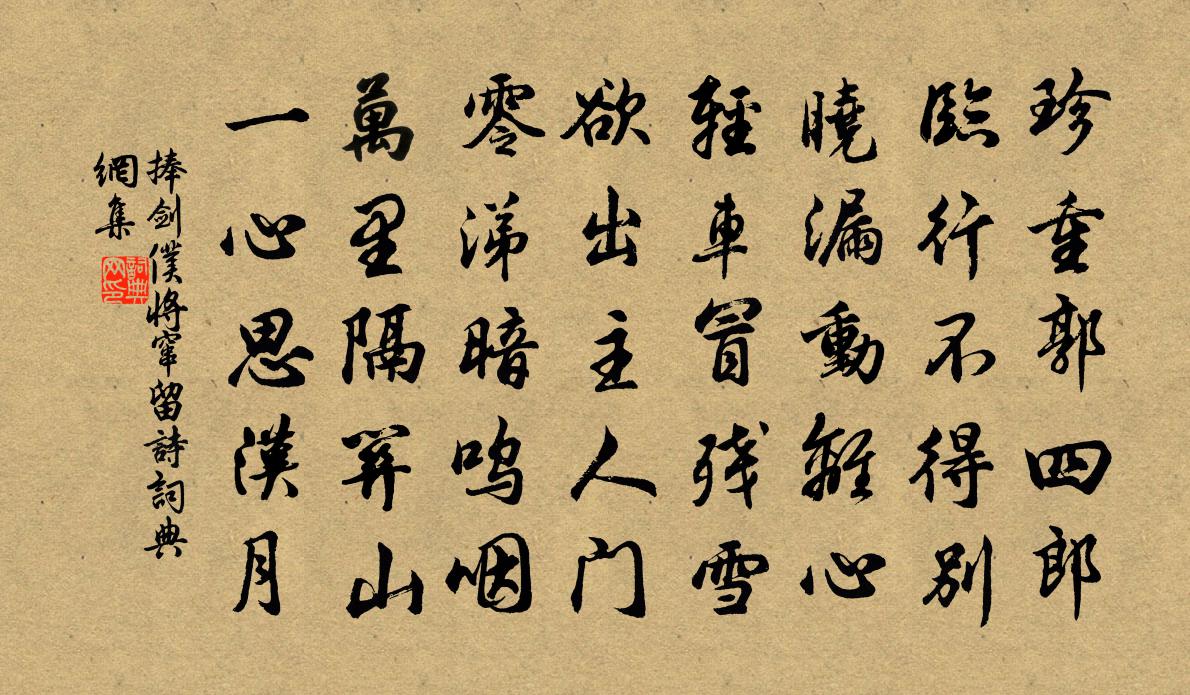 珍重郭四郎
臨行不得別
曉漏動離心
輕車冒殘雪
欲出主人門
零涕暗嗚咽
萬里隔關山
一心思漢月
捧劍僕將竄留詩詞典
網集
詞典
网印